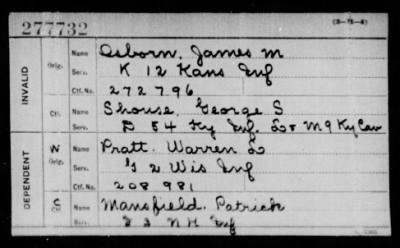 277732 (3-3-4)
INVALID
Orig. Name Osborn, James M
Serv. K 12 Kans Inf
Ctf. No. 272796
Ctf. Name Shouse, George S
Serv. D 54 Ky Inf. L & M 9 Ky Cav
DEPENDENT
W Orig. Name Pratt, Warren L
Serv. G 2 Wis Inf
Ctf. No. 208981
C Ctf. Name Mansfield, Patrick
Serv. N H Inf